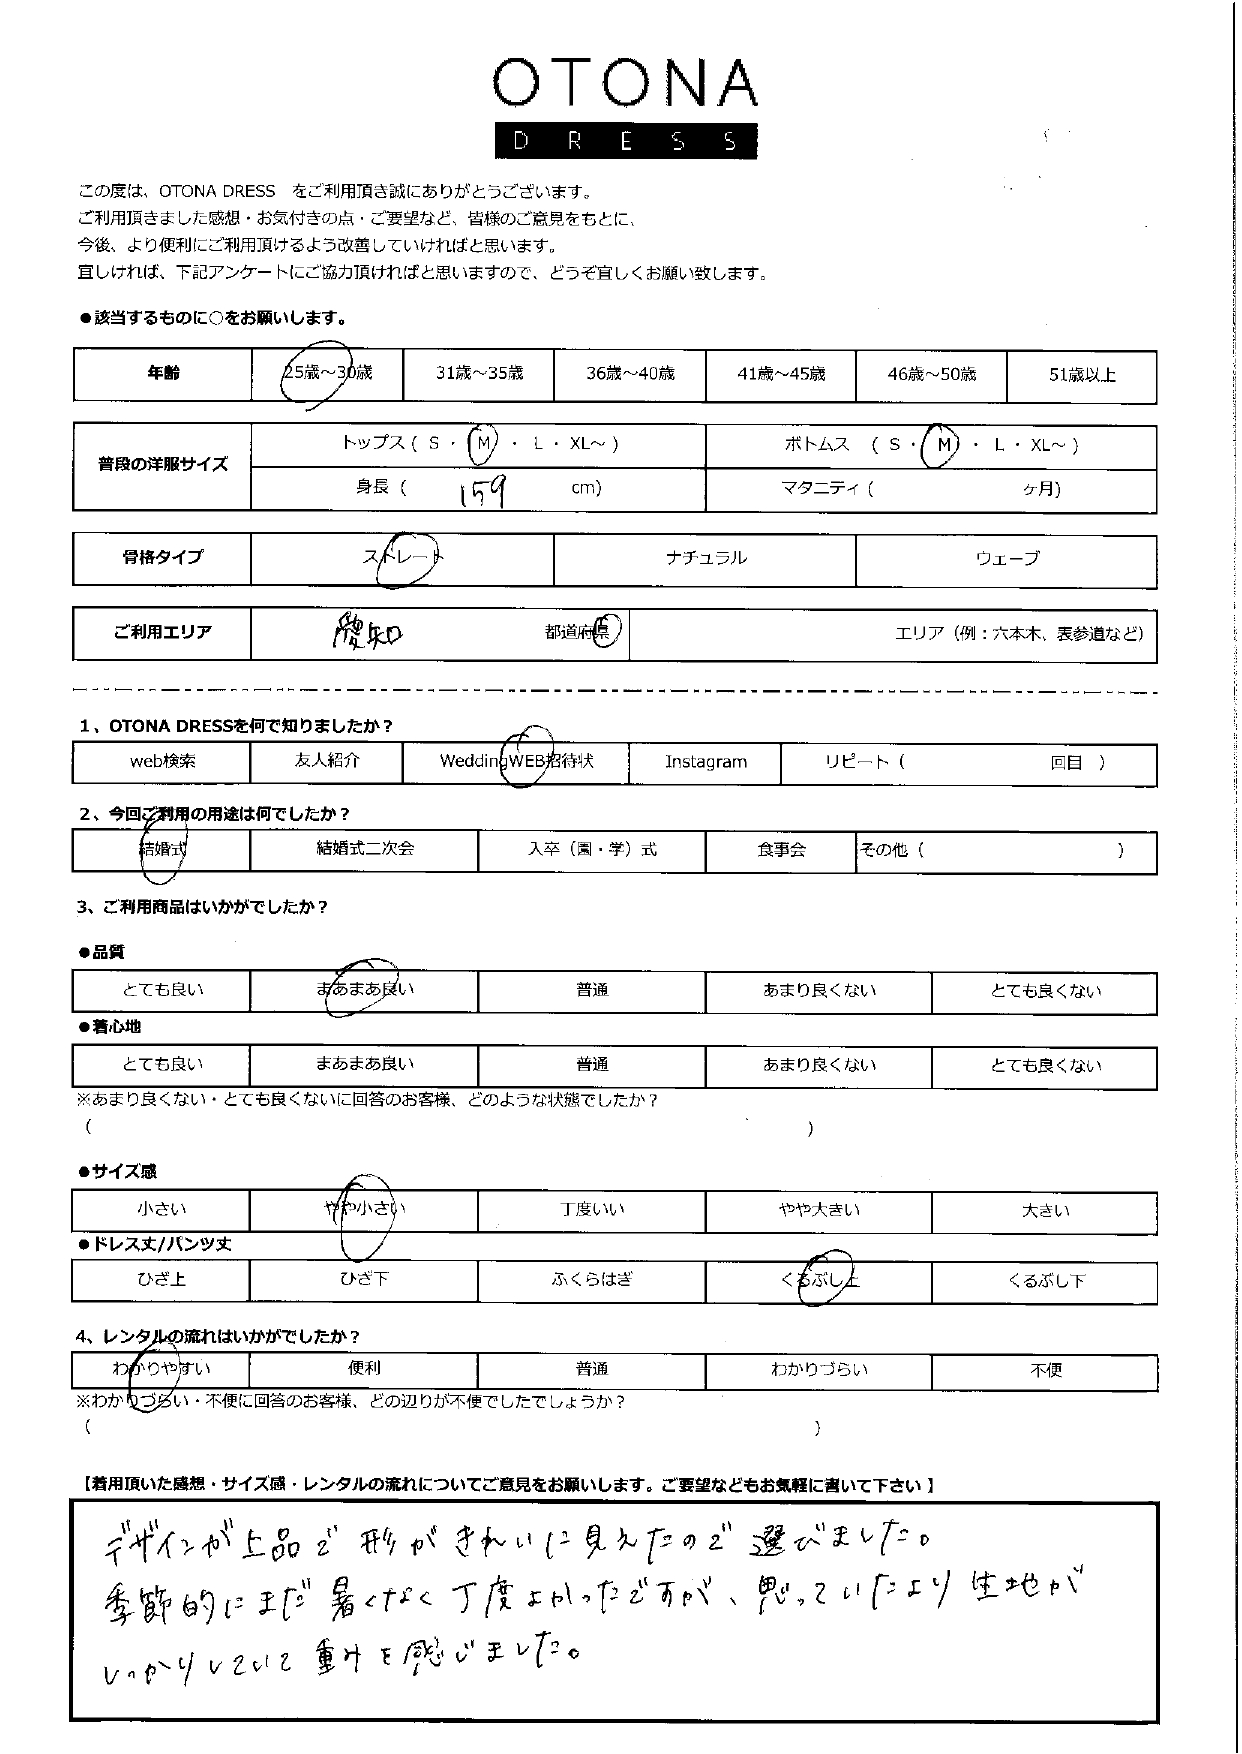 OTONA
DRESS
この度は、OTONA DRESS をご利用頂き誠にありがとうございます。
ご利用頂きました感想・お気付きの点・ご要望など、皆様のご意見をもとに、
今後、より便利にご利用頂けるよう改善していければと思います。
宜しければ、下記アンケートにご協力頂ければと思いますので、どうぞ宜しくお願い致します。
●該当するものに○をお願いします。
年齢 25歳～30歳 31歳～35歳 36歳～40歳 41歳～45歳 46歳～50歳 51歳以上
普段の洋服サイズ トップス ( S ・ M ・ L ・ XL～ ) ボトムス ( S ・ M ・ L ・ XL～ )
身長 ( 159 cm) マタニティ ( ヶ月)
骨格タイプ ストレート ナチュラル ウェーブ
ご利用エリア 愛知 都道府県 エリア（例：六本木、表参道など）
1、OTONA DRESSを何で知りましたか？
web検索 友人紹介 WeddingWEB招待状 Instagram リピート ( 回目 )
2、今回ご利用の用途は何でしたか？
結婚式 結婚式二次会 入卒（園・学）式 食事会 その他 ( )
3、ご利用商品はいかがでしたか？
●品質
とても良い まあまあ良い 普通 あまり良くない とても良くない
●着心地
とても良い まあまあ良い 普通 あまり良くない とても良くない
※あまり良くない・とても良くないに回答のお客様、どのような状態でしたか？
( )
●サイズ感
小さい やや小さい 丁度いい やや大きい 大きい
●ドレス丈/パンツ丈
ひざ上 ひざ下 ふくらはぎ くるぶし上 くるぶし下
4、レンタルの流れはいかがでしたか？
わかりやすい 便利 普通 わかりづらい 不便
※わかりづらい・不便に回答のお客様、どの辺りが不便でしたでしょうか？
( )
【着用頂いた感想・サイズ感・レンタルの流れについてご意見をお願いします。ご要望などもお気軽に書いて下さい】
デザインが上品で形がきれいに見えたので選びました。
季節的にまだ暑くなく丁度よかったですが、思っていたより生地が
しっかりしていて重みを感じました。